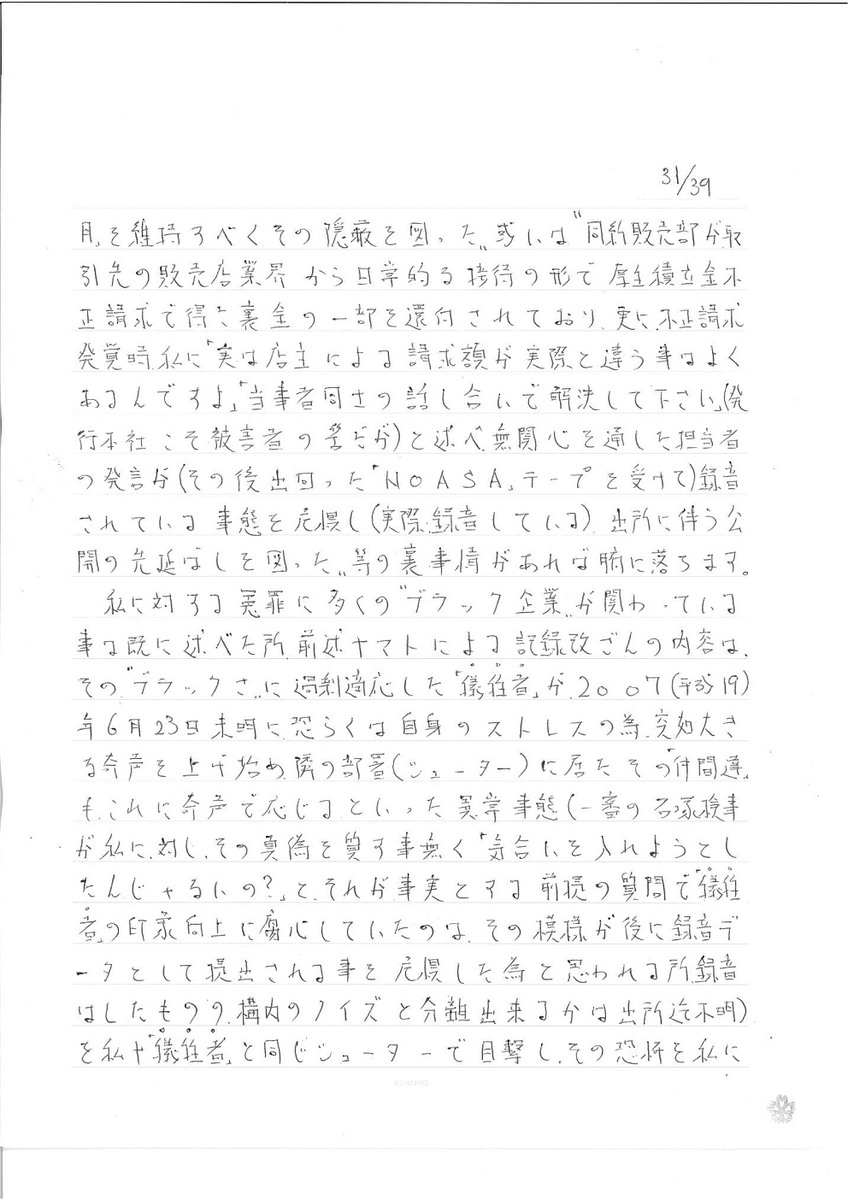 31/39
月」を維持すべくその隠蔽を図った〟或いは〝同紙販売部が取
引先の販売店業界から日常的な接待の形で厚生積立金不
正請求で得た裏金の一部を還付されており、更に、不正請求
発覚時、私に「実は店主による請求額が実際と違う事はよく
あるんですよ」「当事者同士の話し合いで解決して下さい」(発
行本社こそ被害者の筈だが)と述べ、無関心を通した担当者
の発言が(その後出回った「NOASA」テープを受けて)録音
されている事態を危惧し(実際録音している)、出所に伴う公
開の先延ばしを図った〟等の裏事情があれば腑に落ちます。
私に対する冤罪に多くの〝ブラック企業〟が関わっている
事は既に述べた所、前述ヤマトによる記録改ざんの内容は、
その〝ブラックさ〟に過剰適応した「犠牲者」が、2007(平成19)
年6月23日未明に恐らくは自身のストレスの為、突如大き
な奇声を上げ始め、隣の部署(シューター)に居たその「仲間達」
も、これに奇声で応じるといった異常事態(一審の石塚検事
が私に対し、その真偽を質す事無く「気合いを入れようとし
たんじゃないの?」と、それが事実とする前提の質問で「犠牲
者」の印象向上に腐心していたのは、その模様が後に録音デ
ータとして提出される事を危惧した為と思われる所、録音
はしたものの、構内のノイズと分離出来るかは出所迄不明)
を私や「犠牲者」と同じシューターで目撃し、その恐怖を私に
KOKUYO